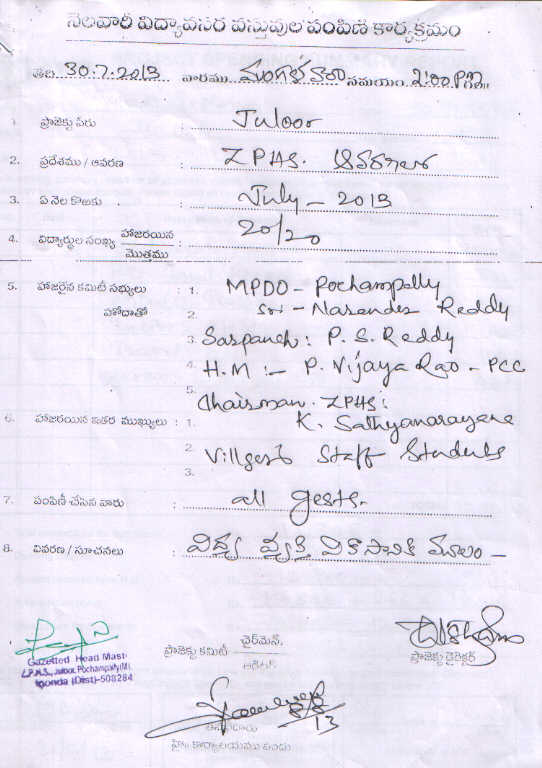 నెలవారీ విద్యావసర వస్తువుల పంపిణీ కార్యక్రమం
తేది 30.7.2013 వారము మంగళవారం సమయం 2:00 PM
1. ప్రాజెక్టు పేరు : Juloor
2. ప్రదేశము / ఆవరణ : ZPHS.
3. ఏ నెల కొఱకు : July - 2013
4. విద్యార్థుల సంఖ్య హాజరయిన / మొత్తము : 20/20
5. హాజరైన కమిటీ సభ్యులు : 1. MPDO - Pochampally
హోదాతో 2. Sri - Narender Reddy
3. Sarpanch : P. S. Reddy
4. H.M :- P. Vijaya Rao - PCC
5. Chairman. ZPHS :
6. హాజరయిన ఇతర ముఖ్యులు : 1. K. Sathyanarayana
2. Villgest Staff Students
3.
7. పంపిణీ చేసిన వారు : all gests.
8. వివరణ / సూచనలు : విద్య వ్యక్తి వికాసానికి మూలం -
ప్రాజెక్టు కమిటీ ఛైర్మెన్.
ప్రాజెక్టు డైరెక్టర్
Gazetted Head Mast
Z.P.H.S., Juloor, Pochampally(M)
lgonda (Dist)-508284
13